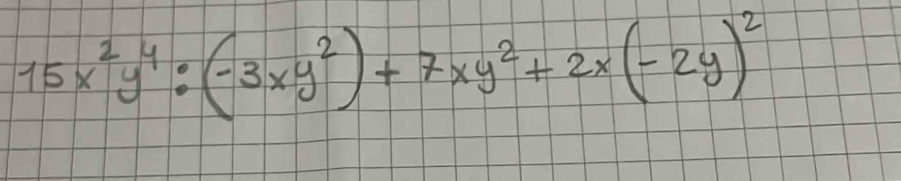 15x²y⁴ : (-3xy²) + 7xy² + 2x(-2y)²